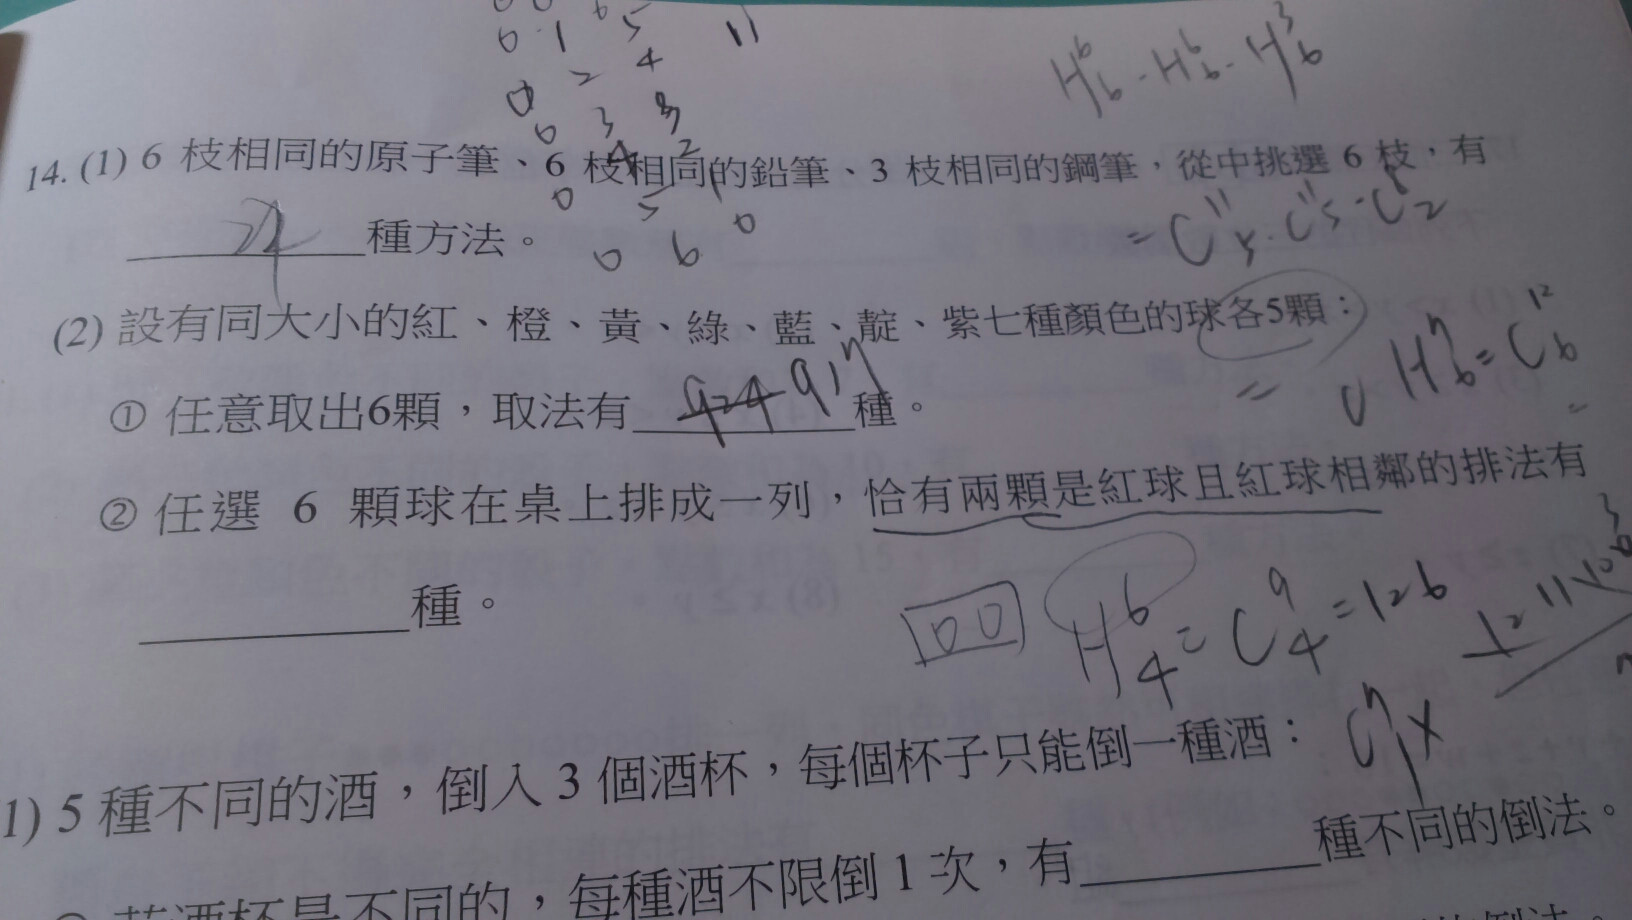 0 1 5
11
0 2 4
H⁶₆ · H⁶₆ · H³₆
0 3 3
14. (1) 6 枝相同的原子筆、6 枝相同的鉛筆、3 枝相同的鋼筆，從中挑選 6 枝，有
0 4 2
種方法。
0 5 1
0 6 0
(2) 設有同大小的紅、橙、黃、綠、藍、靛、紫七種顏色的球各5顆：
H⁷₆ = C¹²₆
① 任意取出6顆，取法有 924 917 種。
② 任選 6 顆球在桌上排成一列，恰有兩顆是紅球且紅球相鄰的排法有
種。
H⁶₄ = C⁹₄ = 126
1) 5 種不同的酒，倒入 3 個酒杯，每個杯子只能倒一種酒：
若酒杯是不同的，每種酒不限倒 1 次，有
種不同的倒法。